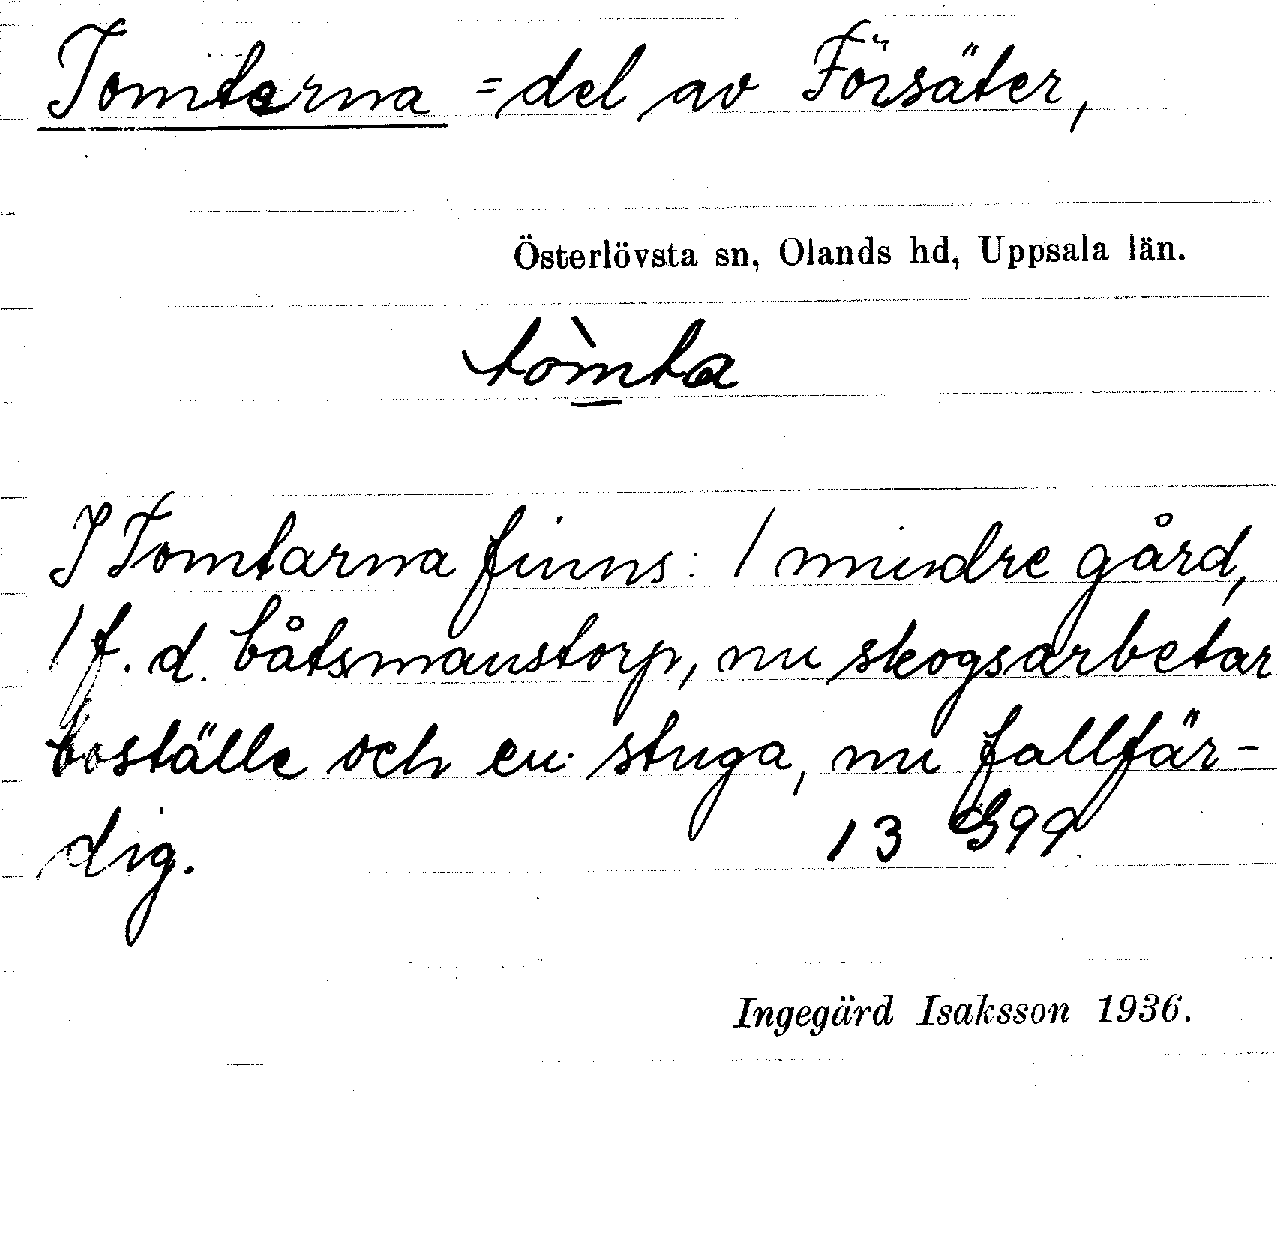 Tomterna = del av Försäter,
Österlövsta sn, Olands hd, Uppsala län.
tòmta
I Tomtarna finns: 1 mindre gård,
1 f. d. båtsmanstorp, nu skogsarbetar
boställe och en stuga, nu fallfär-
dig.
13 G99
Ingegärd Isaksson 1936.